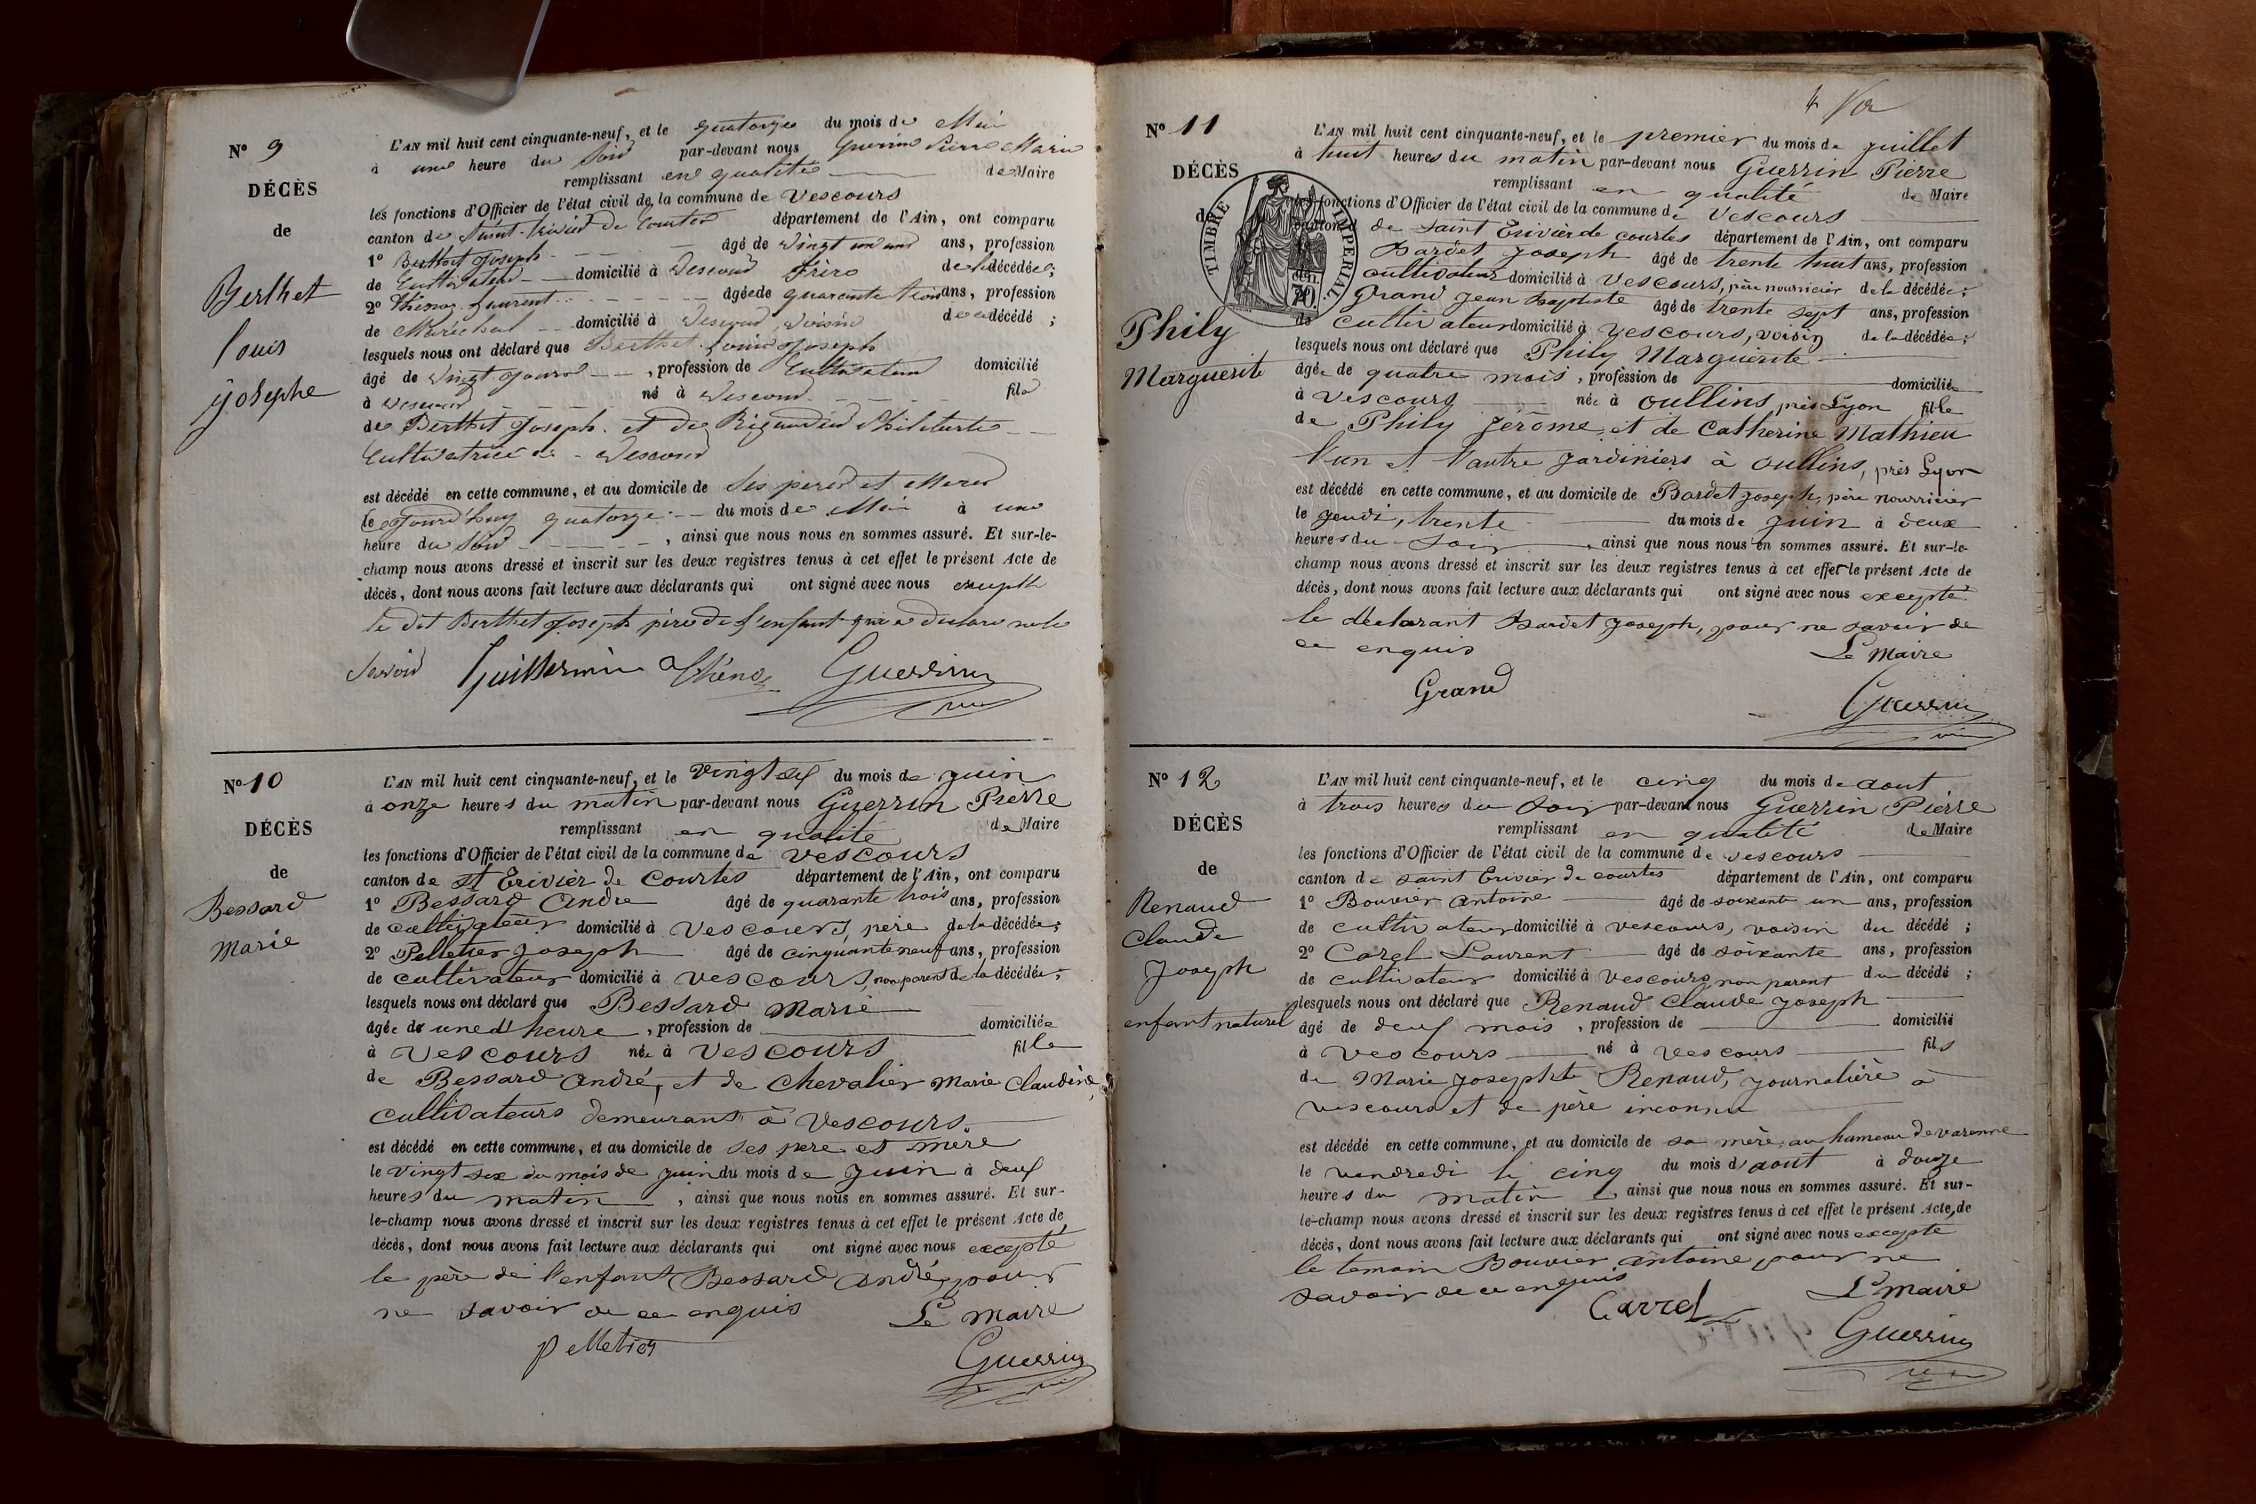 N° 9
DÉCÈS
de
Berthet
Louis
Josephe
L'AN mil huit cent cinquante-neuf, et le quatorze du mois de Mai
à une heure du soir par-devant nous Guerrin Pierre Marie
remplissant en qualité de Maire
les fonctions d'Officier de l'état civil de la commune de Vescours
canton de Saint-Trivier de Courtes département de l'Ain, ont comparu
1° Berthet Joseph âgé de vingt ans, profession
de Cultivateur domicilié à Vescours décédé;
2° Thénoz Laurent âgé de quarante trois ans, profession
de Maréchal domicilié à Vescours, voisin du décédé;
lesquels nous ont déclaré que Berthet Louis Joseph
âgé de vingt jours, profession de Cultivateur domicilié
à Vescours né à Vescours fils
de Berthet Joseph et de Philiberte
Cultivatrice à Vescours
est décédé en cette commune, et au domicile de ses pères et Mères
le aujourd'huy quatorze du mois de Mai à une
heure du soir, ainsi que nous nous en sommes assuré. Et sur-le-
champ nous avons dressé et inscrit sur les deux registres tenus à cet effet le présent Acte de
décès, dont nous avons fait lecture aux déclarants qui ont signé avec nous excepté
le dit Berthet Joseph père de l'enfant qui a déclaré ne le
savoir Guillermin Thénoz Guerrin
N° 10
DÉCÈS
de
Bessard
Marie
L'AN mil huit cent cinquante-neuf, et le vingt six du mois de juin
à onze heures du matin par-devant nous Guerrin Pierre
remplissant en qualité de Maire
les fonctions d'Officier de l'état civil de la commune de Vescours
canton de St Trivier de Courtes département de l'Ain, ont comparu
1° Bessard André âgé de quarante trois ans, profession
de cultivateur domicilié à Vescours, père de la décédée;
2° Pelletier Joseph âgé de cinquante neuf ans, profession
de cultivateur domicilié à Vescours, non parent de la décédée;
lesquels nous ont déclaré que Bessard Marie
âgée de une d'heure, profession de domiciliée
à Vescours née à Vescours fille
de Bessard André, et de Chevalier Marie Claudine,
cultivateurs demeurant à Vescours.
est décédé en cette commune, et au domicile de ses père et mère
le vingt six du mois de juin du mois de Juin à deux
heures du matin, ainsi que nous nous en sommes assuré. Et sur-
le-champ nous avons dressé et inscrit sur les deux registres tenus à cet effet le présent Acte de
décès, dont nous avons fait lecture aux déclarants qui ont signé avec nous excepté
le père de l'enfant Bessard André, pour
ne savoir de ce enquis Le Maire
Pelletier Guerrin
N° 11
DÉCÈS
de
TIMBRE IMPERIAL
70
Phily
Marguerite
L'AN mil huit cent cinquante-neuf, et le premier du mois de juillet
à huit heures du matin par-devant nous Guerrin Pierre
remplissant en qualité de Maire
les fonctions d'Officier de l'état civil de la commune de Vescours
canton de Saint Trivier de courtes département de l'Ain, ont comparu
Bardet Joseph âgé de trente huit ans, profession
cultivateur domicilié à Vescours, père nourricier de la décédée;
Grand Jean Baptiste âgé de trente sept ans, profession
de cultivateur domicilié à Vescours, voisin de la décédée;
lesquels nous ont déclaré que Phily Marguerite
âgée de quatre mois, profession de domiciliée
à Vescours née à Oullins près Lyon fille
de Phily Jérôme, et de Catherine Mathieu
l'un et l'autre Jardiniers à Oullins, près Lyon
est décédé en cette commune, et au domicile de Bardet Joseph, père nourricier
le jeudi, trente du mois de juin à deux
heures du soir, ainsi que nous nous en sommes assuré. Et sur-le-
champ nous avons dressé et inscrit sur les deux registres tenus à cet effet le présent Acte de
décès, dont nous avons fait lecture aux déclarants qui ont signé avec nous excepté
le déclarant Bardet Joseph, pour ne savoir de
ce enquis Le Maire
Grand Guerrin
N° 12
DÉCÈS
de
Renaud
Claude
Joseph
enfant naturel
L'AN mil huit cent cinquante-neuf, et le cinq du mois de aout
à trois heures du soir par-devant nous Guerrin Pierre
remplissant en qualité de Maire
les fonctions d'Officier de l'état civil de la commune de Vescours
canton de Saint Trivier de courtes département de l'Ain, ont comparu
1° Bouvier Antoine âgé de soixante un ans, profession
de cultivateur domicilié à Vescours, voisin du décédé;
2° Carel Laurent âgé de soixante ans, profession
de cultivateur domicilié à Vescours, non parent du décédé;
lesquels nous ont déclaré que Renaud Claude Joseph
âgé de deux mois, profession de domicilié
à Vescours né à Vescours fils
de Marie Josephte Renaud, journalière à
Vescours et de père inconnu
est décédé en cette commune, et au domicile de sa mère, au hameau de varenne
le vendredi le cinq du mois d'aout à douze
heures du matin, ainsi que nous nous en sommes assuré. Et sur-
le-champ nous avons dressé et inscrit sur les deux registres tenus à cet effet le présent Acte de
décès, dont nous avons fait lecture aux déclarants qui ont signé avec nous excepté
le temoin Bouvier Antoine, pour ne
savoir de ce enquis Le Maire
Carrel Guerrin